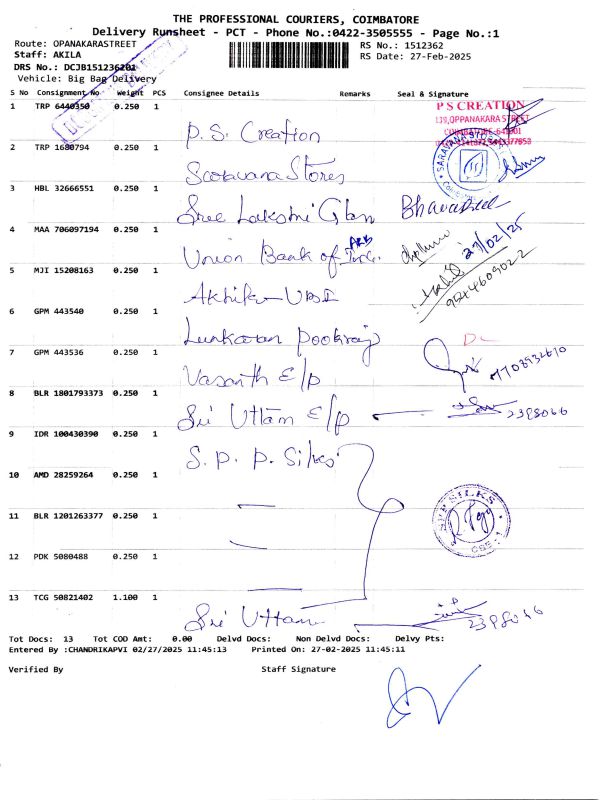 THE PROFESSIONAL COURIERS, COIMBATORE
Delivery Runsheet - PCT - Phone No.:0422-3505555 - Page No.:1
Route: OPANAKARASTREET
RS No.: 1512362
Staff: AKILA
RS Date: 27-Feb-2025
DRS No.: DCJB151236201
Vehicle: Big Bag Delivery
S No Consignment No Weight PCS Consignee Details Remarks Seal & Signature
1 TRP 6440350 0.250 1 P.S. Creation
P S CREATION
139, OPPANAKARA STREET
2 TRP 1680794 0.250 1 Saravana Stores
3 HBL 32666551 0.250 1 Sree Lakshmi Bhavasree
4 MAA 706097194 0.250 1 Union Bank of 27/02/25
5 MJI 15208163 0.250 1 9244609022
6 GPM 443540 0.250 1
7 GPM 443536 0.250 1 Vasanth E/p
8 BLR 1801793373 0.250 1 Sri Uttam E/p 2398066
9 IDR 100430390 0.250 1 S. P. P. Silks
10 AMD 28259264 0.250 1
SPP SILKS
11 BLR 1201263377 0.250 1
12 PDK 5080488 0.250 1
13 TCG 50821402 1.100 1 Sri Uttam 2398066
Tot Docs: 13 Tot COD Amt: 0.00 Delvd Docs: Non Delvd Docs: Delvy Pts:
Entered By :CHANDRIKAPVI 02/27/2025 11:45:13 Printed On: 27-02-2025 11:45:11
Verified By Staff Signature